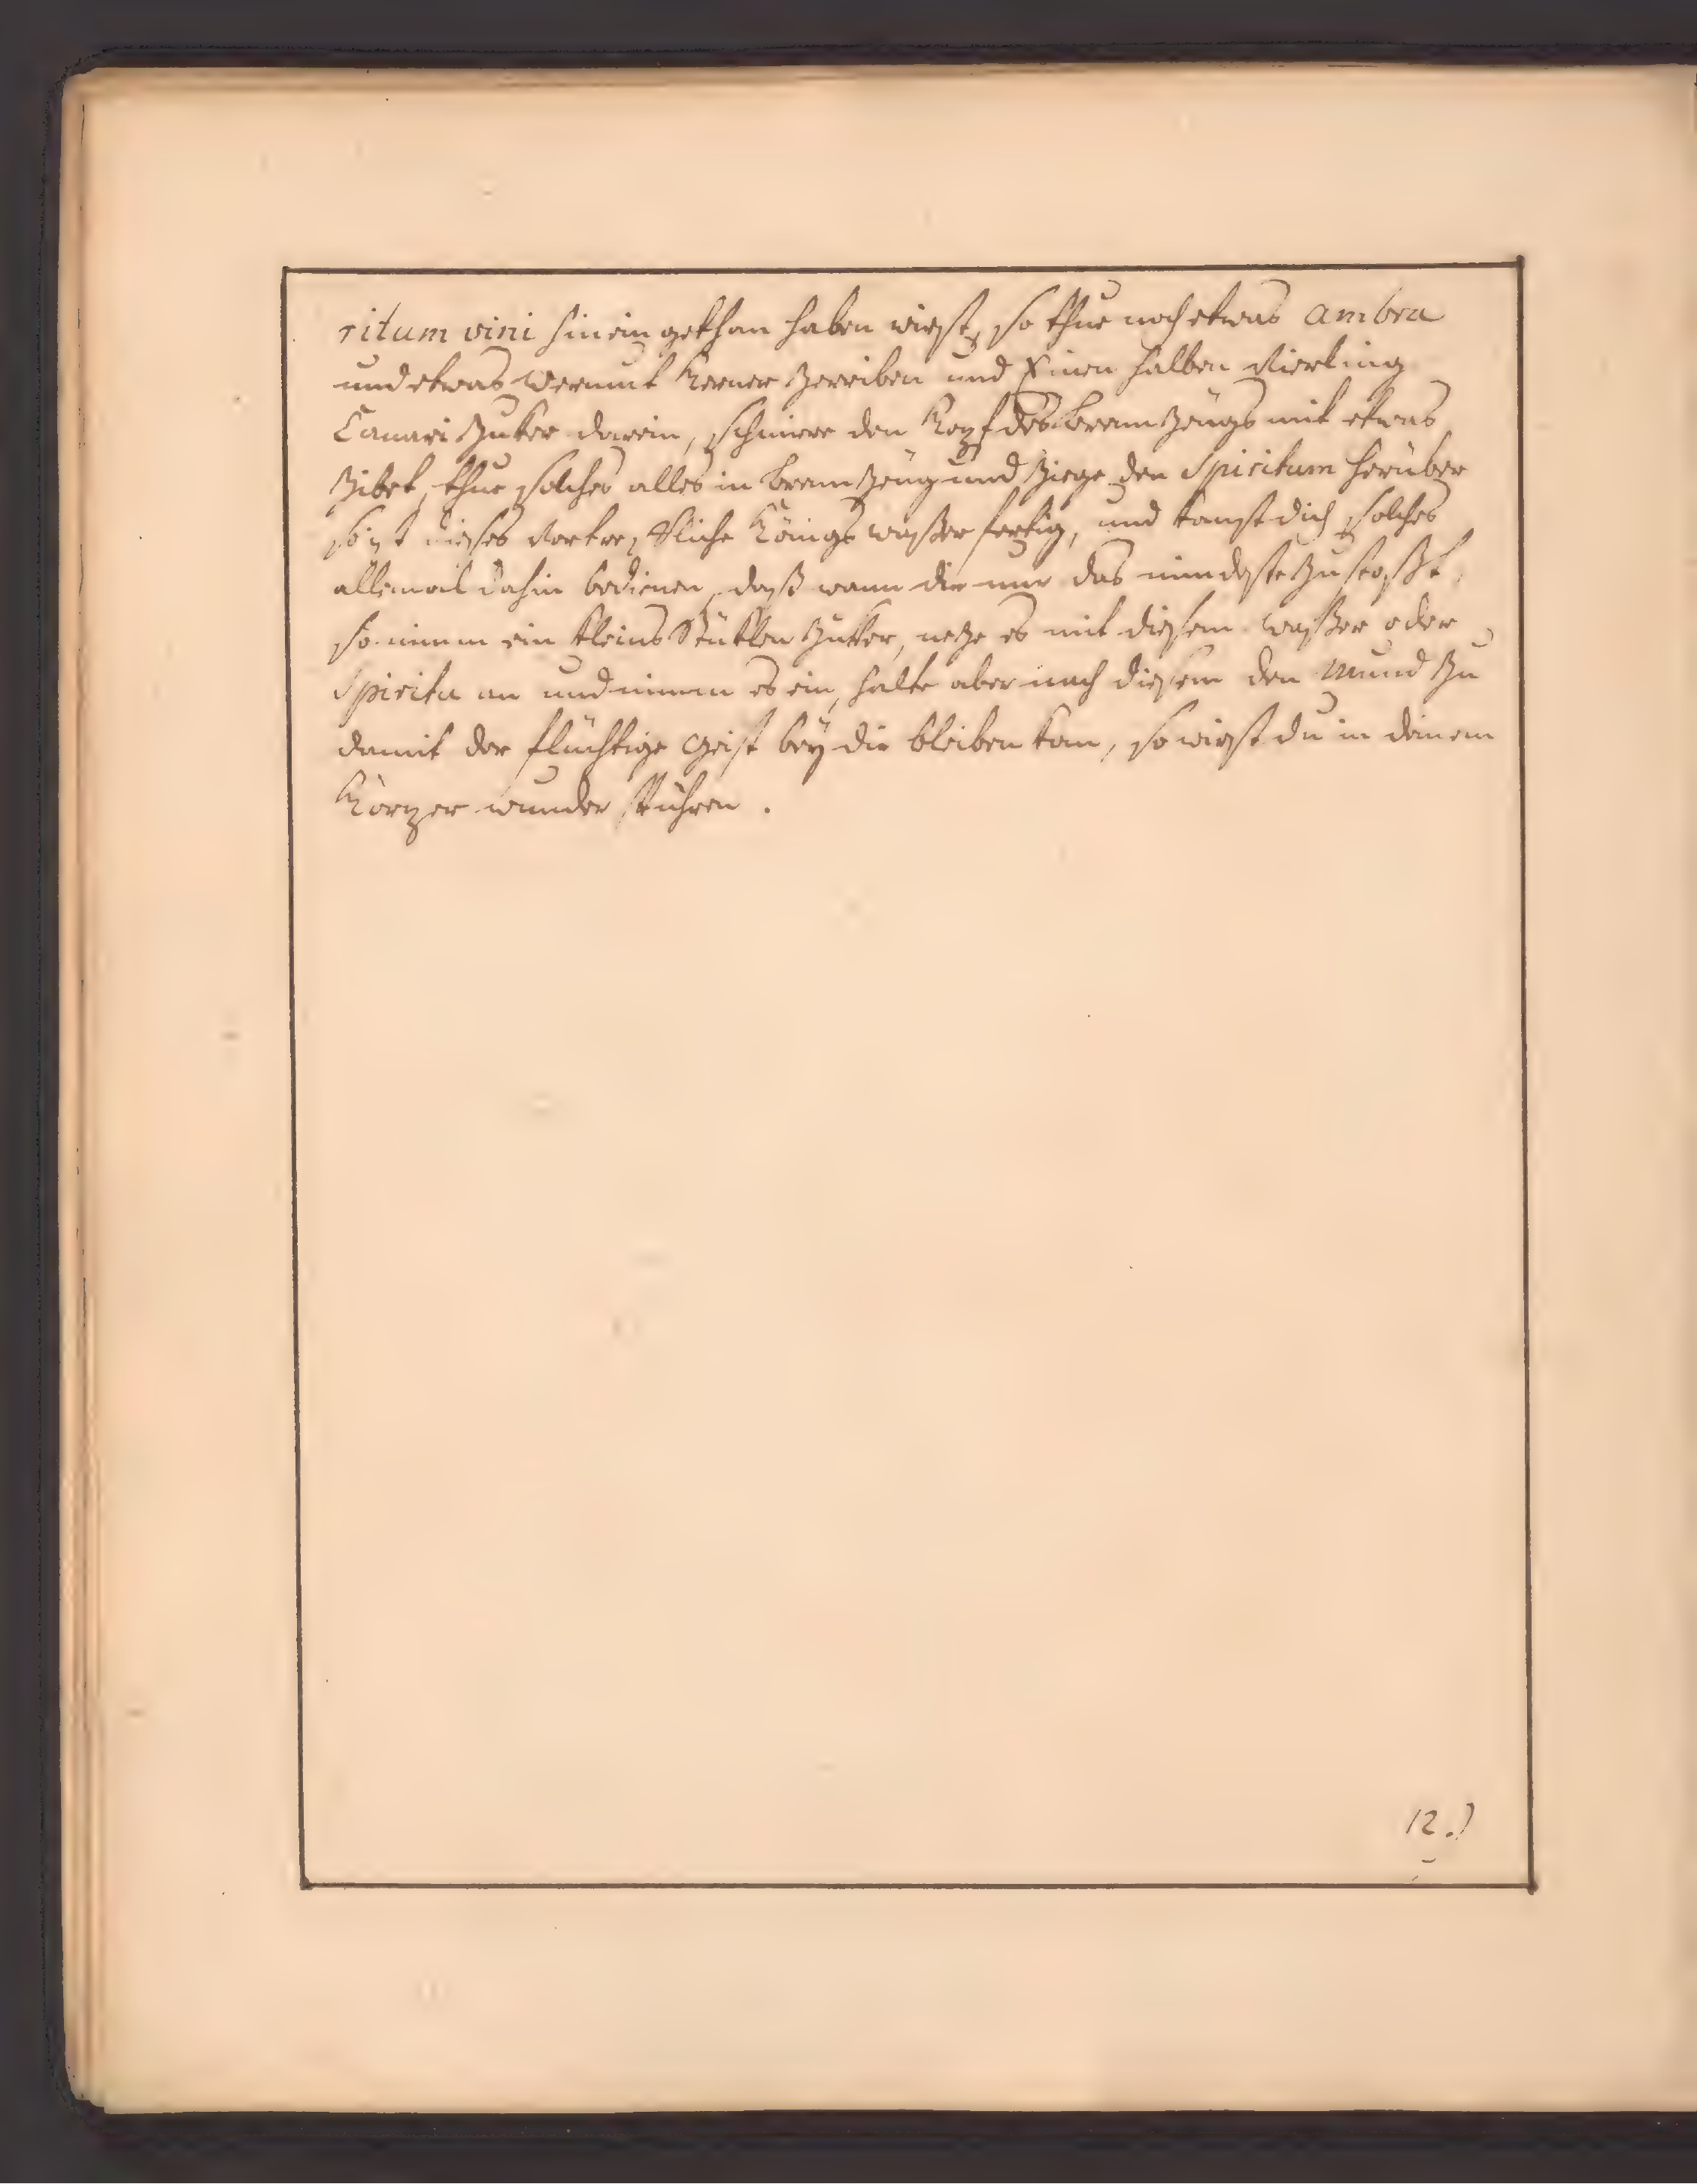 ritum vini hinein gethan haben wirst, so thue noch etwas Ambra
und etwas Kerner zerreiben und Einen halben Vierling
Canari Zuker darein, schmiere den Kopf des Brennzeugs mit etwas
Zibet, thue solches alles in Brennzeug und Ziege den Spiritum herüber
so ist dieses Vortreffliche Königs wasser fertig, und kanst dich solches
allemal dahin bedienen, daß wann dir nur das mindeste zustoßt,
so nimm ein kleins Stüklen Zukker, netze es mit diesem Wasser oder
Spiritu an und nimm es ein, halte aber nach diesem den Mund zu
damit der flüchtige Geist bey dir bleiben kan, so wirst du in deinem
Körper wunder spühren.
12.)